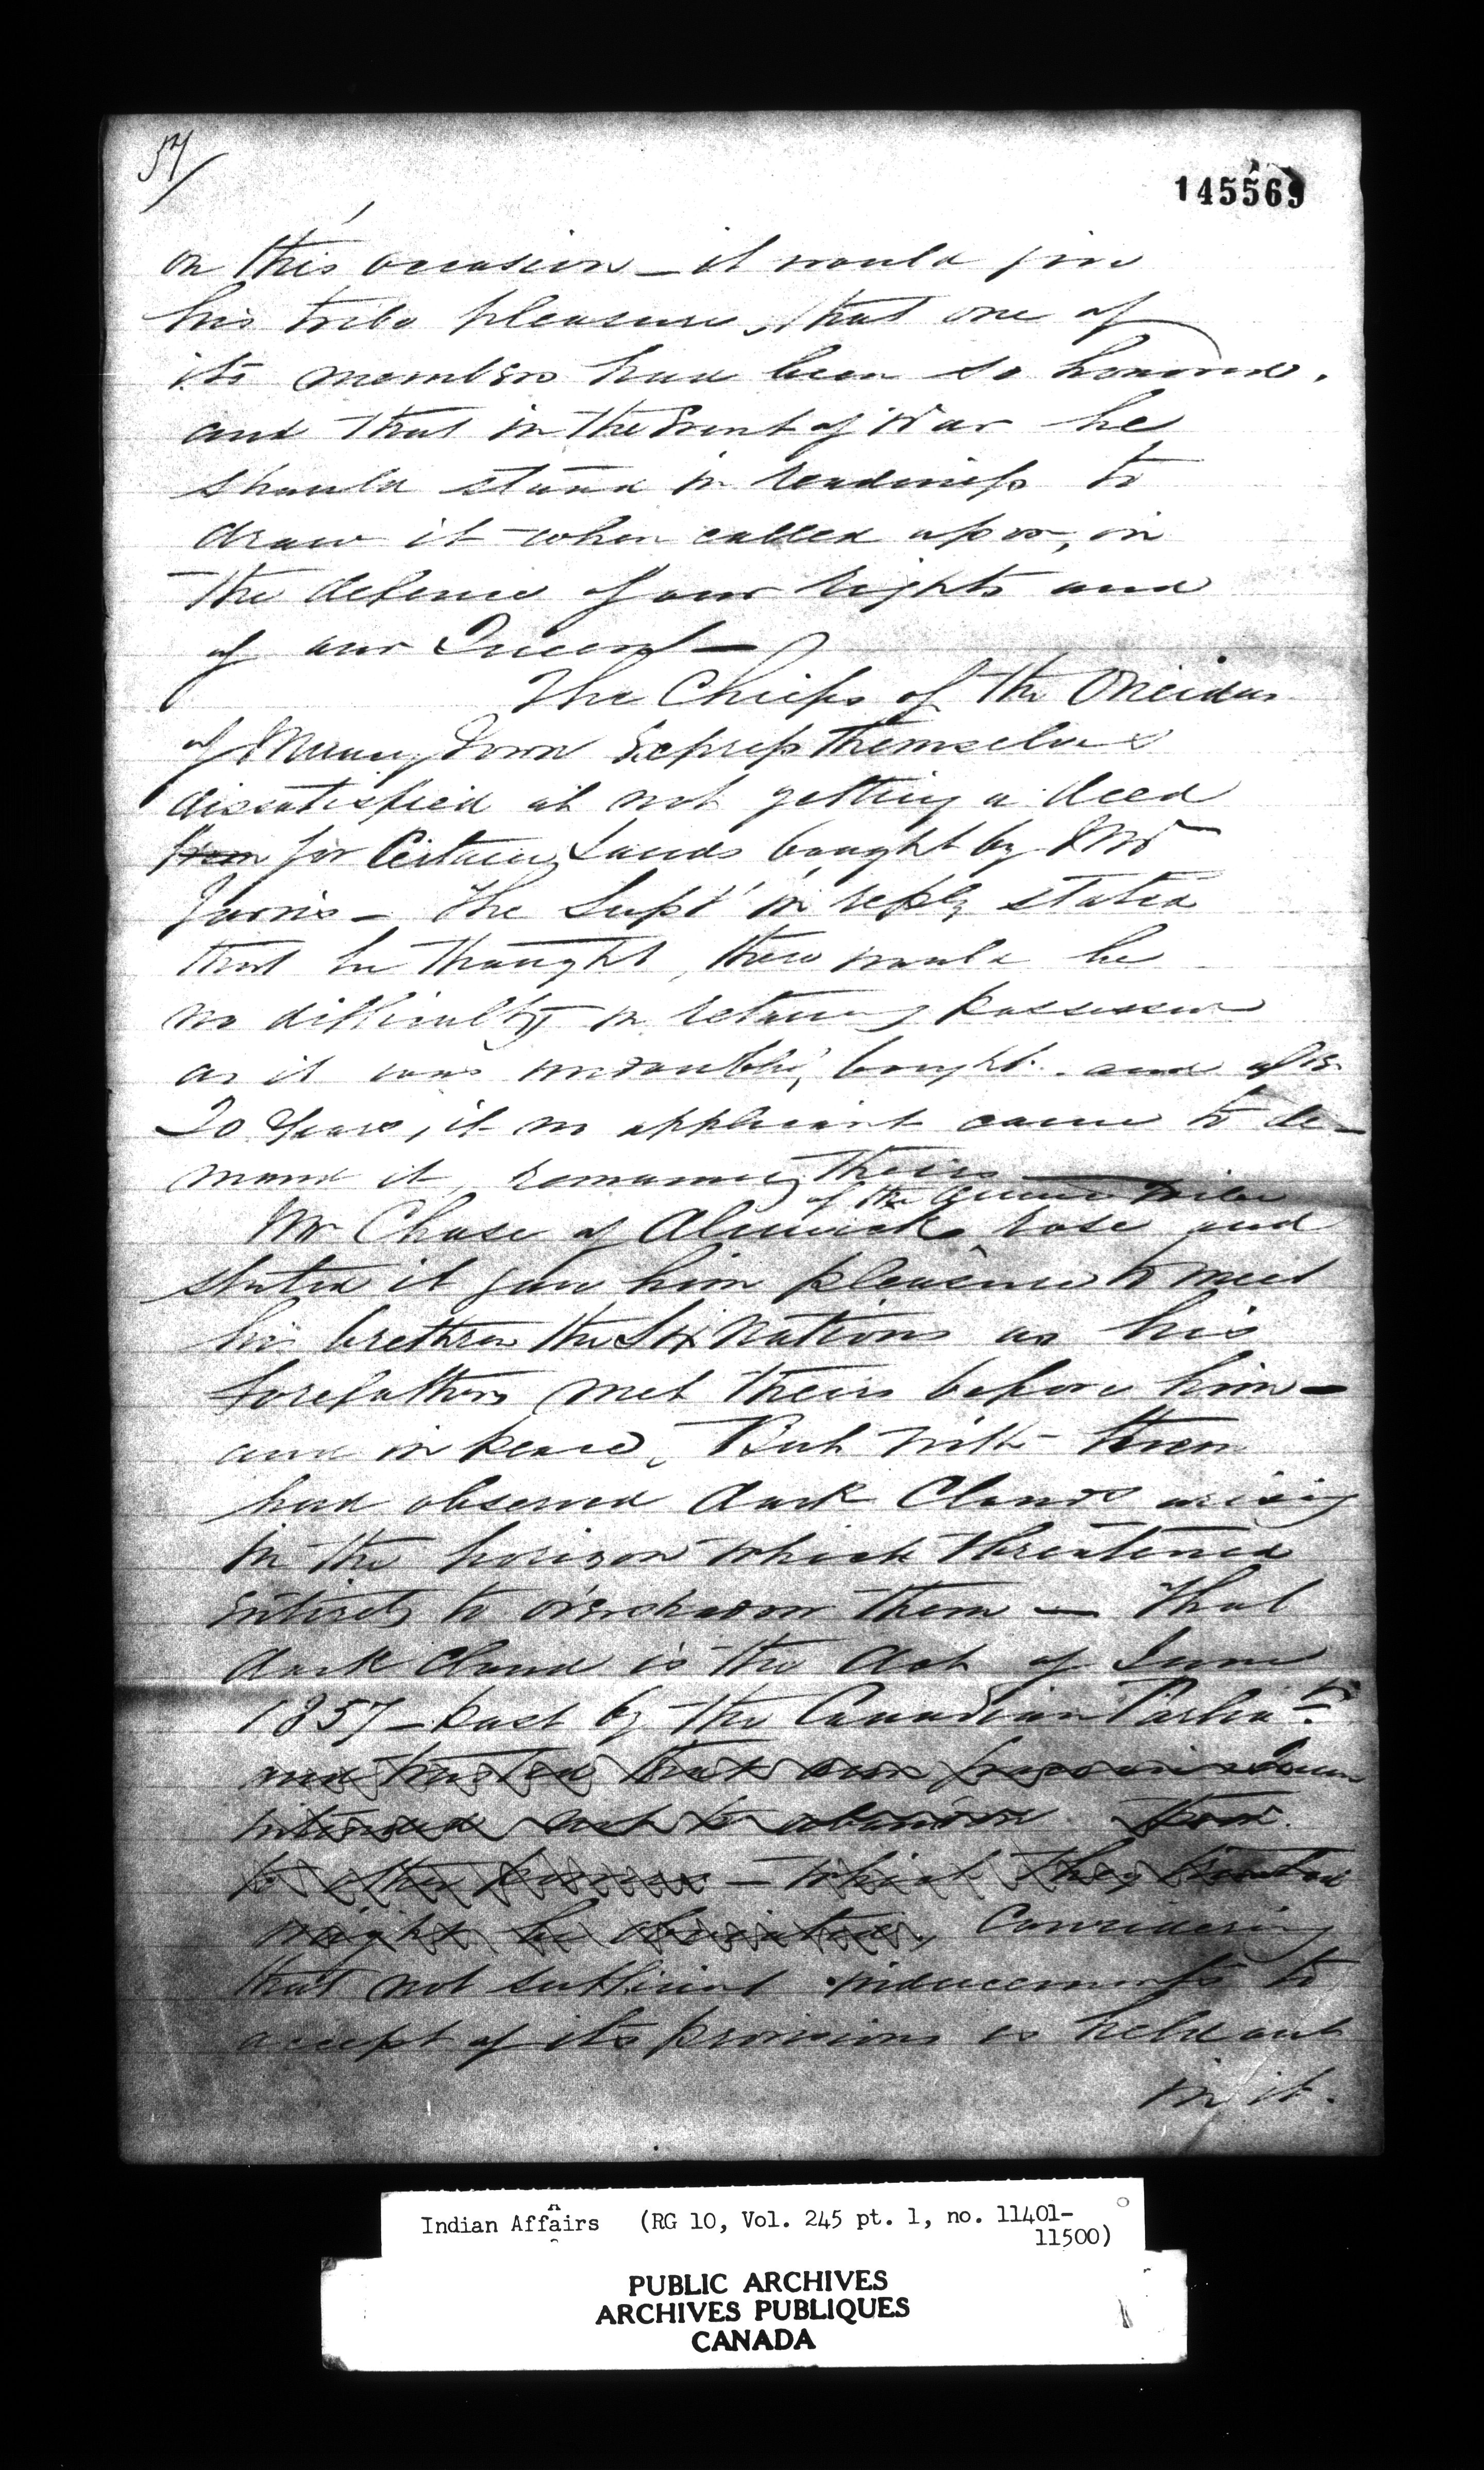 57/
145569
on this occasion – it would give
his tribe pleasure, that one of
its members had been so honored.
and that in the Event of War he
should stand in readiness to
draw it when called upon, in
the defence of our rights and
of our Queen –
The Chiefs of the Oneidas
of Muncey Town Express themselves
dissatisfied at not getting a deed
from for Certain Lands bought by Mr
Jarvis – The Supt in reply stated
that he thought, there would be
no difficulty in retaining possession
as it was bought and after
20 Years, if no applicant came to de-
mand it, remained theirs
of the Tribe
Mr Chase of Alnwick rose and
stated it gave him pleasure to meet
his brethren the Six Nations as his
forefathers met theirs before him –
and in peace, But with them
had observed dark Clouds arising
in the horizon which threatened
entirely to overshadow them – That
dark cloud is the Act of June
1857 – past by the Canadian Parliat.
and trusted that
intended not to abandon them
to – which they trusted
might be obviated, Considering
that not sufficient inducements to
accept of its provisions is held out
in it.
Indian Affairs (RG 10, Vol. 245 pt. 1, no. 11401-
11500)
PUBLIC ARCHIVES
ARCHIVES PUBLIQUES
CANADA